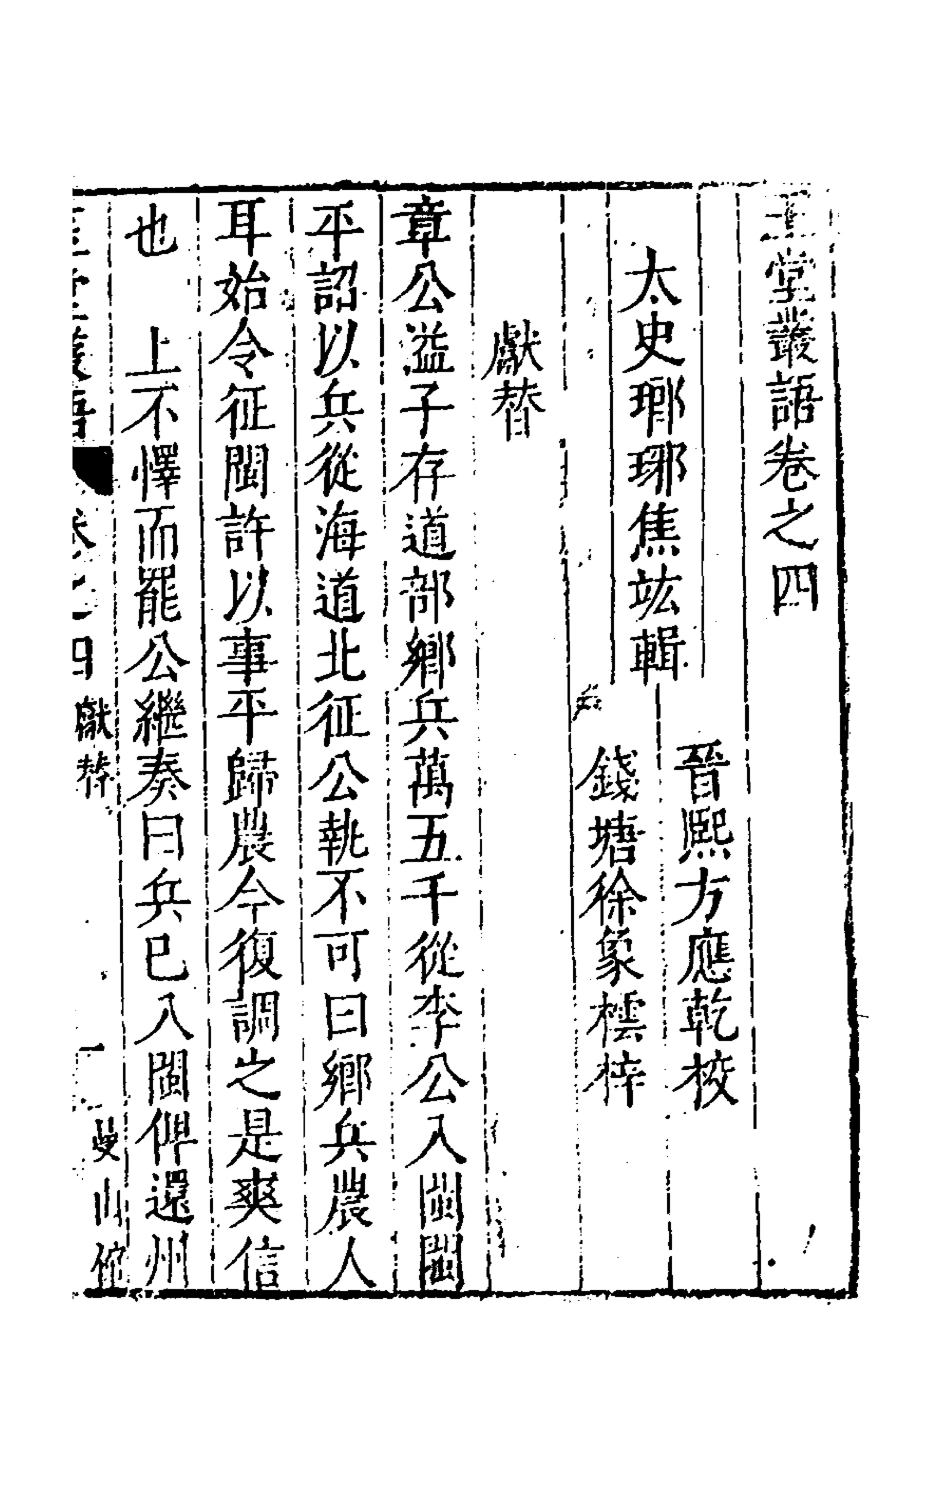 玉堂叢語卷之四
太史瑯琊焦竑輯
晉熙方應乾校
錢塘徐象橒梓
獻替
章公溢子存道部鄉兵萬五千從李公入閩閩
平詔以兵從海道北征公執不可曰鄉兵農人
耳始令征閩許以事平歸農今復調之是爽信
也　上不懌而罷公繼奏曰兵已入閩俾還州
玉堂叢語　卷之四　獻替　一　曼山館